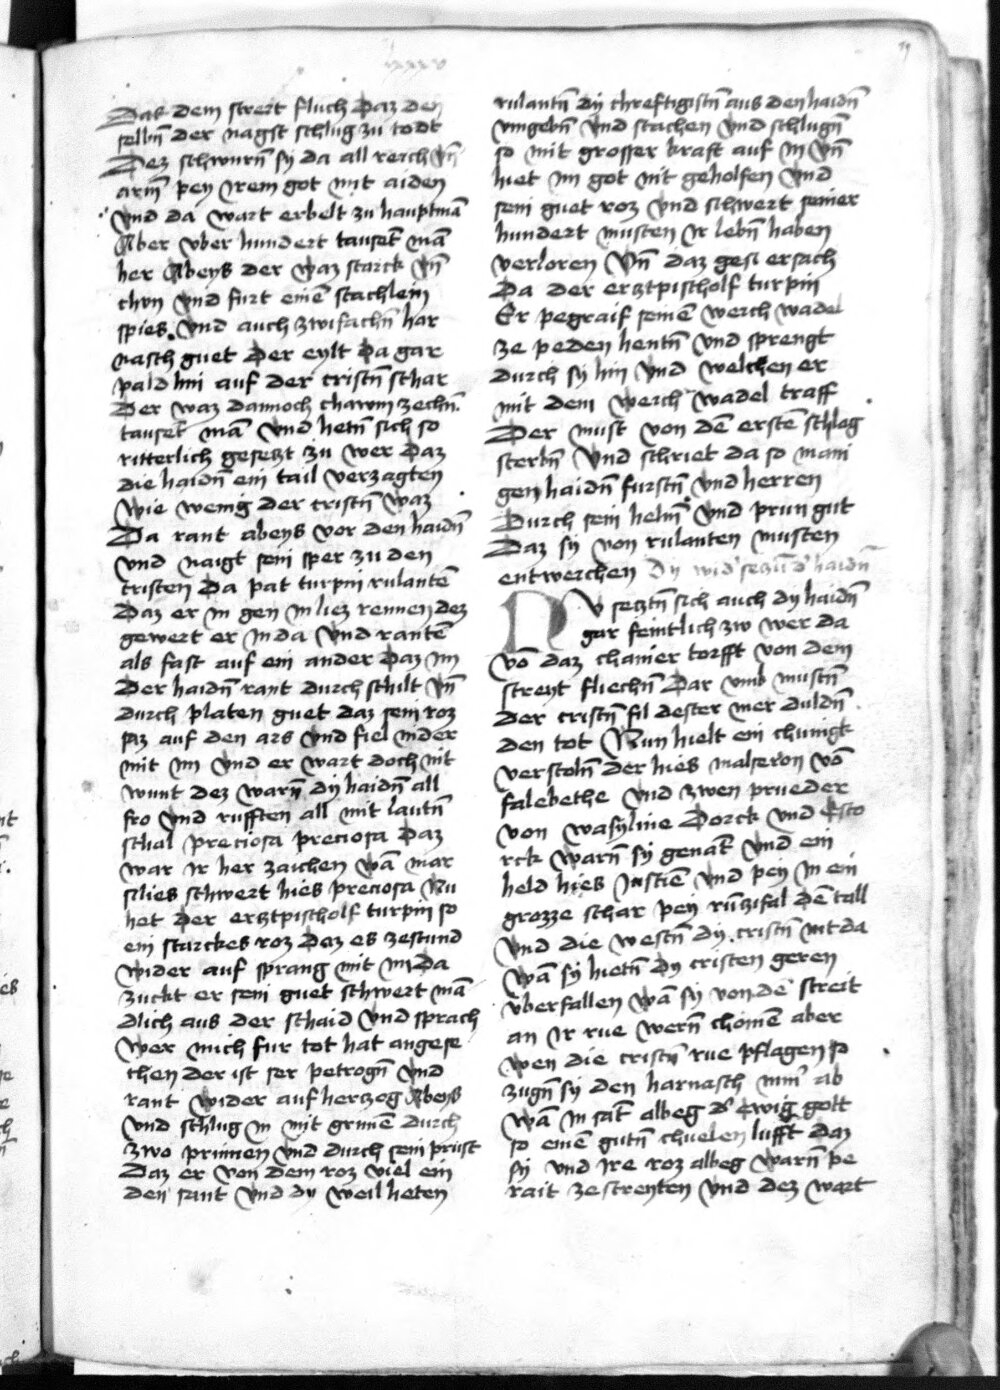 Das dem streit fluch daz den
selbñ der nagst schlug zu todt
Dez schwurñ sy da all reich vñ
armˀ pey irem got mit aiden
vnd da wart erbelt zu hauptmā
Aber vber hundert tausēt mā
her Abeys der waz starck vñ
chvn vnd furt einē stachlein
spies. vnd auch zwifachñ har
nasch guet Der eylt Da gar
pald hin auf der cristñ schar
Der waz dannoch chawm zechñ.
tausēt mā vnd hetñ sich so
ritterlich gesetzt zu wer Daz
die haidñ ein tail verzagten
wie wenig der cristñ waz
Da rant abeys vor den haidñ
vnd naigt sein sper zu den
cristen Da pat turpin rulantē
Daz er in gen im liez rennen dez
gewert er in da vnd rantē
als fast auf ein ander Daz im
Der haidñ rant durch schilt vñ
durch platen guet daz sein roz
saz auf den ars vnd fiel nider
mit im vnd er wart doch nit
wunt dez warñ dy haidñ all
fro vnd rufften all mit lautñ
schal preciosa preciosa Daz
war ir her zaichen wā mar
silies schwert hies preciosa Nu
het Der ertzpischolf turpin so
ein starckes roz Dez es zestund
wider auf sprang mit im Da
zuckt er sein guet schwert mā
dlich aus der schaid vnd sprach
wer mich fur tot hat angese
chen der ist ser petrogñ vnd
rant wider auf herzog Abeys
vnd schlug in mit grimē durch
zwo prünnen vnd durch sein prust
Daz er von dem roz viel ein
den sant vnd dy weil heten
rulantñ dy chreftigistñ aus den haidñ
vmgebñ vnd stachen vnd schlugñ
so mit grosser kraft auf in vñ
hiet im got nit geholfen vnd
sein guet roz vnd schwert seiner
hundert musten ir lebñ haben
verloren vñ daz gesl ersach
Da der ertzpischolf turpin
Er pegraif seinē werch wadel
ze peden hentñ vnd sprengt
durch sy hin vnd welchen er
mit dem werch wadel traff
Der must von dē erstē schlag
sterbñ vnd schriet da so mani
gen haidñ furstñ vnd herren
Durch sein helmˀ vnd prun gut
Daz sy von rulanten musten
entweichen Dy widˀ dˀ haidñ
NV setztñ sich auch dy haidñ
gar feintlich zw wer da
vō daz chainer torfft von dem
streyt fliechñ Dar vmb mustñ
der cristñ fil dester mer duldñ
den tot Nun hielt ein chunigk
verstolñ der hies malseron vō
falebethe vnd zwen prueder
von wasyline Dorck vnd Esto
rck warñ sy genāt vnd ein
held hies Justiē vnd pey in ein
grozze schar pey rūtzifal dē tall
vnd die westñ dy cristñ nit da
wā sy hietñ dy cristen geren
vberfallen wā sy von dē streit
an ir rue werñ chomē aber
wen die cristñ rue pflagen so
zugñ sy den harnasch nimˀ ab
wā in sāt albeg dˀ ewig gott
so einē gutñ chuelen lufft daz
sy vnd ire roz albeg warñ pe
rait ze streyten vnd dez wart